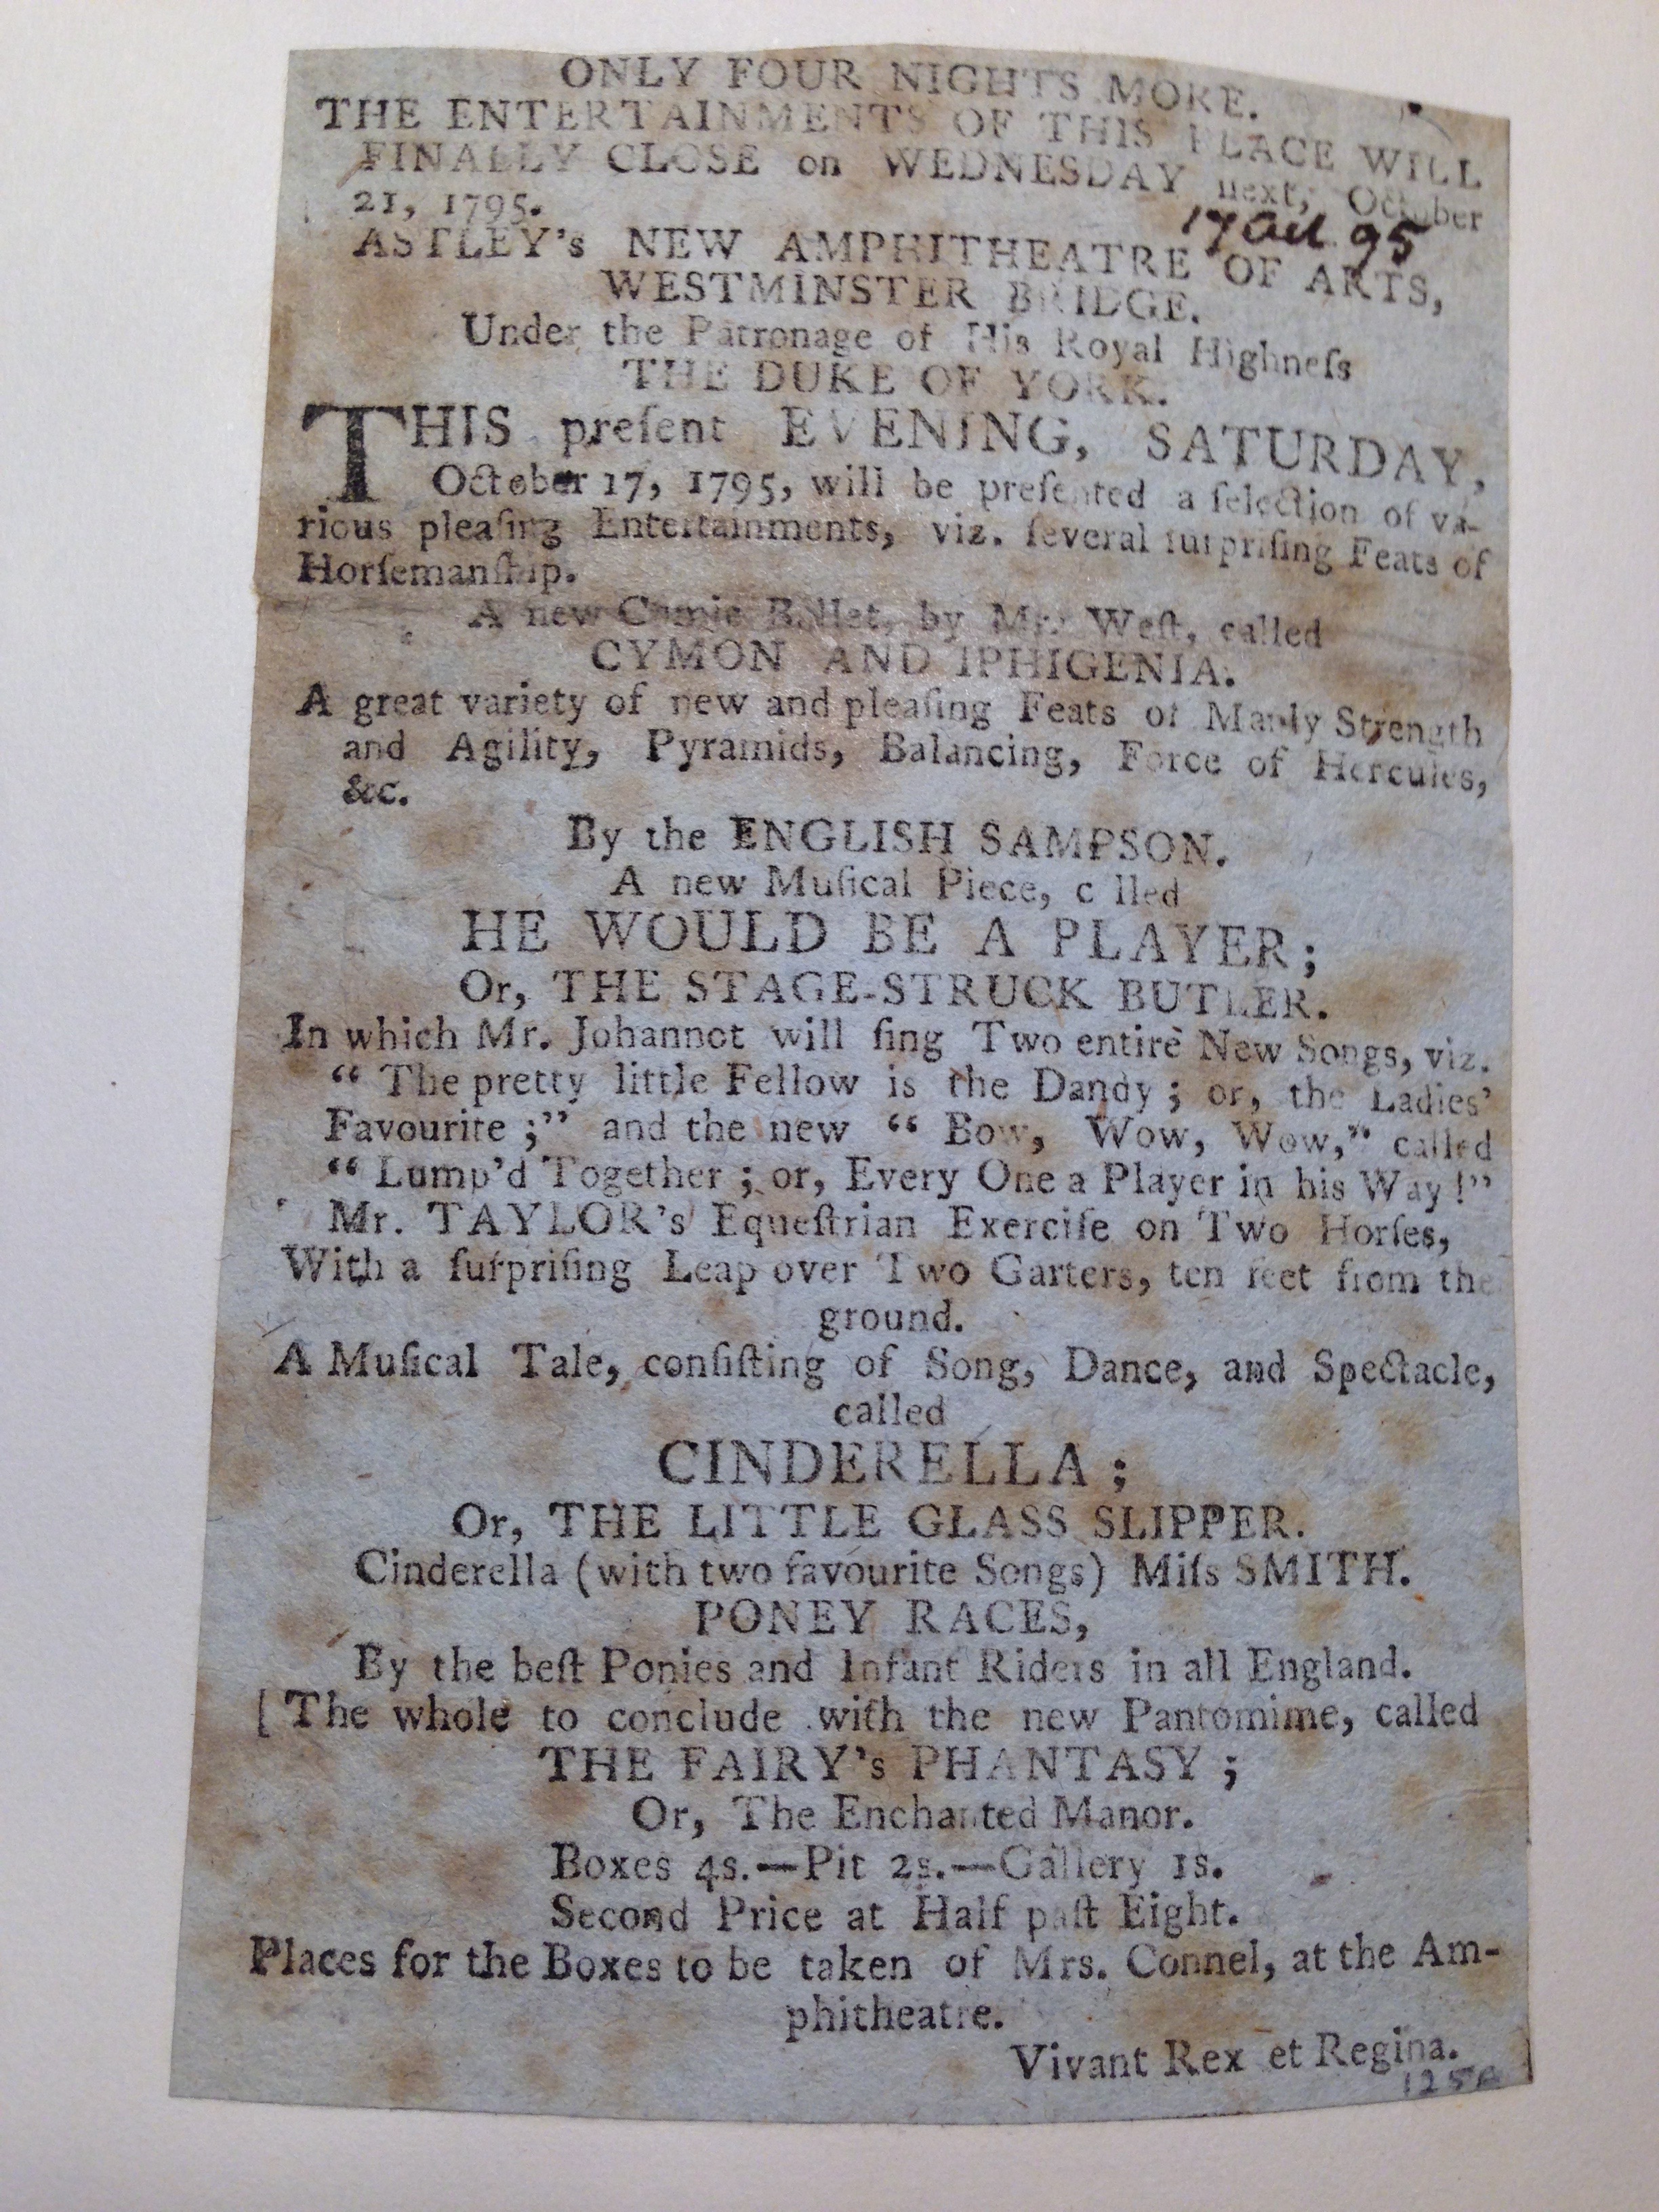 ONLY FOUR NIGHTS MORE.
THE ENTERTAINMENTS OF THIS PLACE WILL
FINALLY CLOSE on WEDNESDAY next, October
21, 1795.
17 Oct 95
ASTLEY's NEW AMPHITHEATRE OF ARTS,
WESTMINSTER BRIDGE.
Under the Patronage of His Royal Highneſs
THE DUKE OF YORK.
THIS preſent EVENING, SATURDAY,
October 17, 1795, will be preſented a ſelection of va-
rious pleaſing Entertainments, viz. ſeveral ſurpriſing Feats of
Horſemanſhip.
A new Comic Ballet, by Mr. Weſt, called
CYMON AND IPHIGENIA.
A great variety of new and pleaſing Feats of Manly Strength
and Agility, Pyramids, Balancing, Force of Hercules,
&c.
By the ENGLISH SAMPSON.
A new Muſical Piece, c lled
HE WOULD BE A PLAYER;
Or, THE STAGE-STRUCK BUTLER.
In which Mr. Johannot will ſing Two entire New Songs, viz.
“ The pretty little Fellow is the Dandy ; or, the Ladies’
Favourite ;” and the new “ Bow, Wow, Wow,” called
“ Lump’d Together ; or, Every One a Player in his Way !”
Mr. TAYLOR’s Equeſtrian Exerciſe on Two Horſes,
With a ſurpriſing Leap over Two Garters, ten feet from the
ground.
A Muſical Tale, conſiſting of Song, Dance, and Spectacle,
called
CINDERELLA ;
Or, THE LITTLE GLASS SLIPPER.
Cinderella (with two favourite Songs) Miſs SMITH.
PONEY RACES,
By the beſt Ponies and Infant Riders in all England.
[ The whole to conclude with the new Pantomime, called
THE FAIRY’s PHANTASY ;
Or, The Enchanted Manor.
Boxes 4s.—Pit 2s.—Gallery 1s.
Second Price at Half paſt Eight.
Places for the Boxes to be taken of Mrs. Connel, at the Am-
phitheatre.
Vivant Rex et Regina.